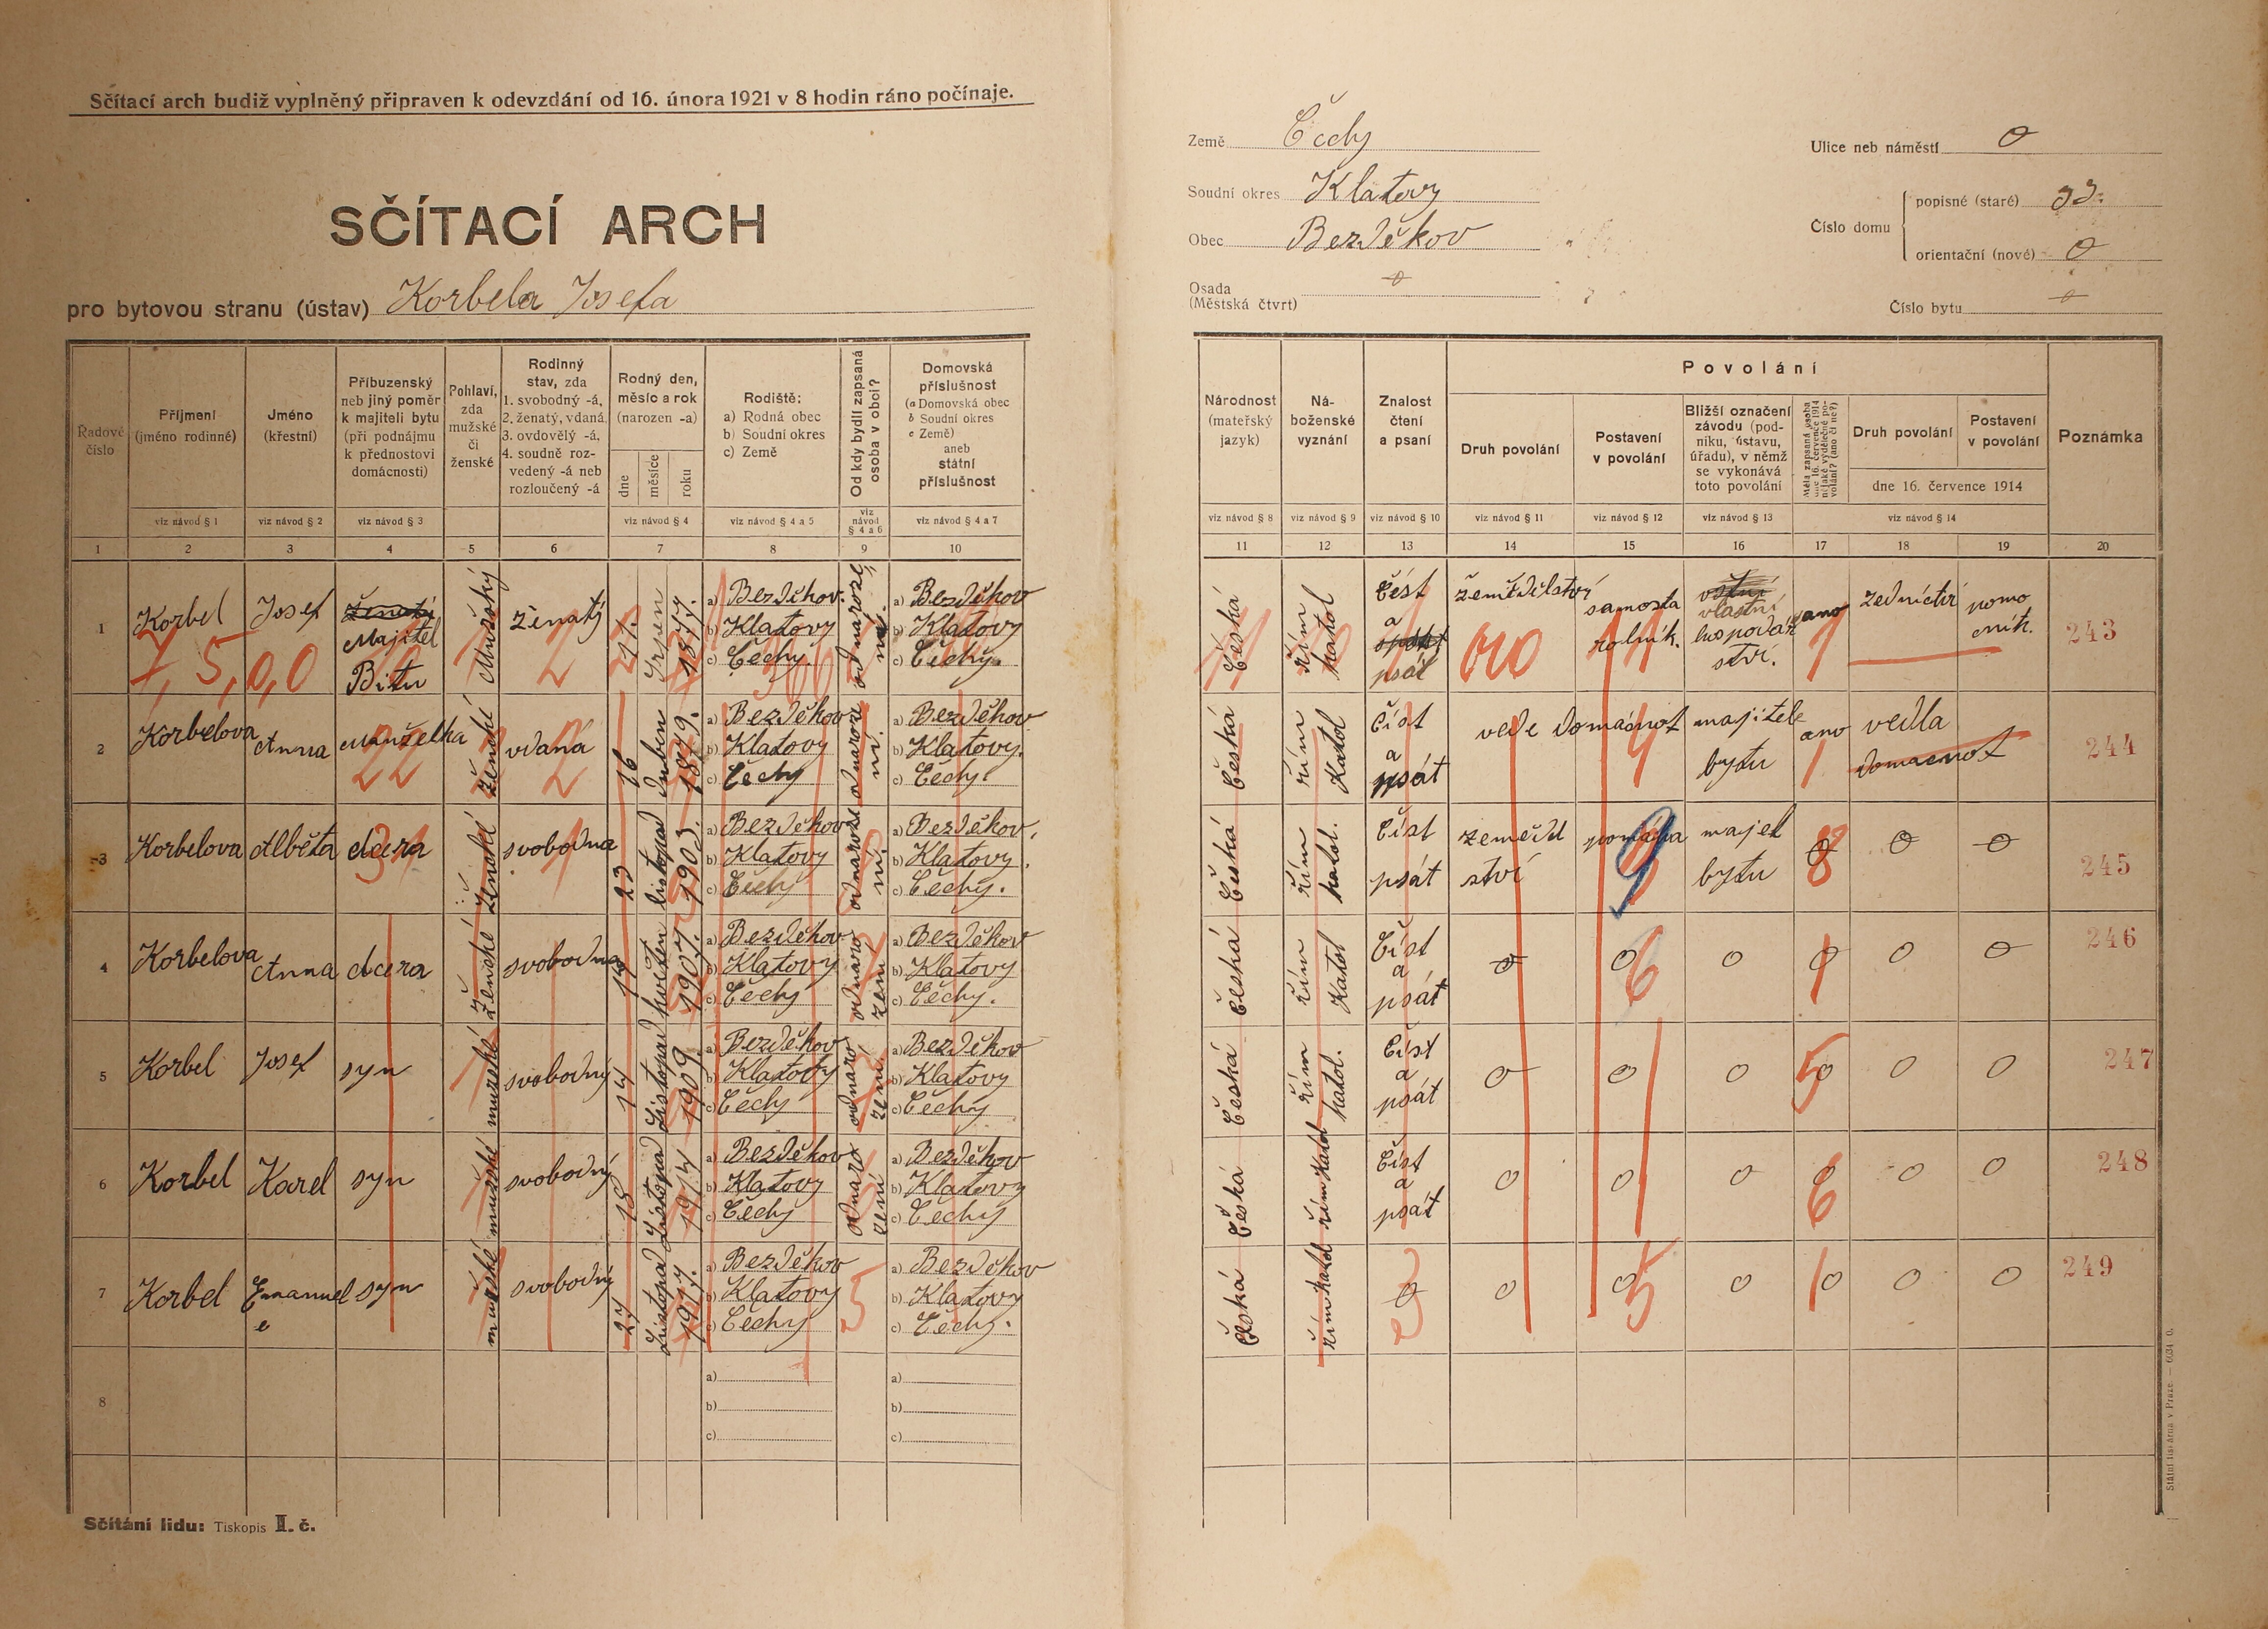 Sčítací arch budiž vyplněný připraven k odevzdání od 16. února 1921 v 8 hodin ráno počínaje.
SČÍTACÍ ARCH
pro bytovou stranu (ústav) Korbela Josefa
Země Čechy
Soudní okres Klatovy
Obec Bezděkov
Osada (Městská čtvrt) 0
Ulice neb náměstí 0
Číslo domu
popisné (staré)
orientační (nové) 0
Číslo bytu 0
Řadové číslo
Příjmení (jméno rodinné)
Jméno (křestní)
Příbuzenský neb jiný poměr k majiteli bytu (při podnájmu k přednostovi domácnosti)
Pohlaví, zda mužské či ženské
Rodinný stav, zda 1. svobodný -á, 2. ženatý, vdaná 3. ovdovělý -á, 4. soudně rozvedený -á neb rozloučený -á
Rodný den, měsíc a rok (narozen -a)
dne měsíce roku
Rodiště: a) Rodná obec b) Soudní okres c) Země
Od kdy bydlí zapsaná osoba v obci?
Domovská příslušnost (a Domovská obec b Soudní okres c Země) aneb státní příslušnost
Národnost (mateřský jazyk)
Náboženské vyznání
Znalost čtení a psaní
Povolání
Druh povolání
Postavení v povolání
Bližší označení závodu (podniku, ústavu, úřadu), v němž se vykonává toto povolání
Měla zapsaná osoba dne 16. července 1914 nějaké výdělečné povolání? (ano či ne?)
Druh povolání
Postavení v povolání
dne 16. července 1914
Poznámka
viz návod § 1 viz návod § 2 viz návod § 3 viz návod § 4 viz návod § 4 a 5 viz návod § 4 a 6 viz návod § 4 a 7
viz návod § 8 viz návod § 9 viz návod § 10 viz návod § 11 viz návod § 12 viz návod § 13 viz návod § 14
1 2 3 4 5 6 7 8 9 10 11 12 13 14 15 16 17 18 19 20
1 Korbel Josef Majitel Bitu Mužský ženatý 21. Srpen 1877. a) Bezděkov. b) Klatovy c) Čechy. od naroze ní. a) Bezděkov b) Klatovy c) Čechy. Česká řím katol Číst a psát zemědělství samosta rolník. vlastní hospodář ství. ano zednictví pomo cník. 243
7, 5, 0, 0
2 Korbelova Anna manželka ženské vdaná 16 duben 1879. a) Bezděkov b) Klatovy c) Čechy od naroze ní. a) Bezděkov b) Klatovy. c) Čechy. Česká řím Katol Číst a psát vede domácnost majitele bytu ano vedla domacnost 244
3 Korbelova Alběta dcera ženské svobodna 23 listopad 1903. a) Bezděkov b) Klatovy c) Čechy od naroze ní. a) Bezděkov. b) Klatovy. c) Čechy. Česká řím katol. Číst psát zeměděl ství majet bytu 0 0 0 245
4 Korbelova Anna dcera ženské svobodna květen 1907. a) Bezděkov b) Klatovy c) Čechy od naro zem a) Bezděkov b) Klatovy c) Čechy. Česká řím Katol Číst a psát 0 0 0 0 0 0 246
5 Korbel Josef syn mužské svobodný 14 Listopad 1909 a) Bezděkov b) Klatovy c) Čechy od naro zení. a) Bezděkov b) Klatovy c) Čechy Česká řím katol. Číst a psát 0 0 0 0 0 0 247
6 Korbel Karel syn mužské svobodný 18 Listopad 1914 a) Bezděkov b) Klatovy c) Čechy od naro zení a) Bezděkov b) Klatovy c) Čechy Česká řím katol Číst a psát 0 0 0 0 0 248
7 Korbel Emanuel syn mužské svobodný 27 Listopad 1917. a) Bezděkov b) Klatovy c) Čechy a) Bezděkov b) Klatovy c) Čechy. Česká řím katol 0 0 0 0 0 0 0 249
8 a) b) c) a) b) c)
Sčítání lidu: Tiskopis II. č.
Státní tiskárna v Praze. — 6634 0.